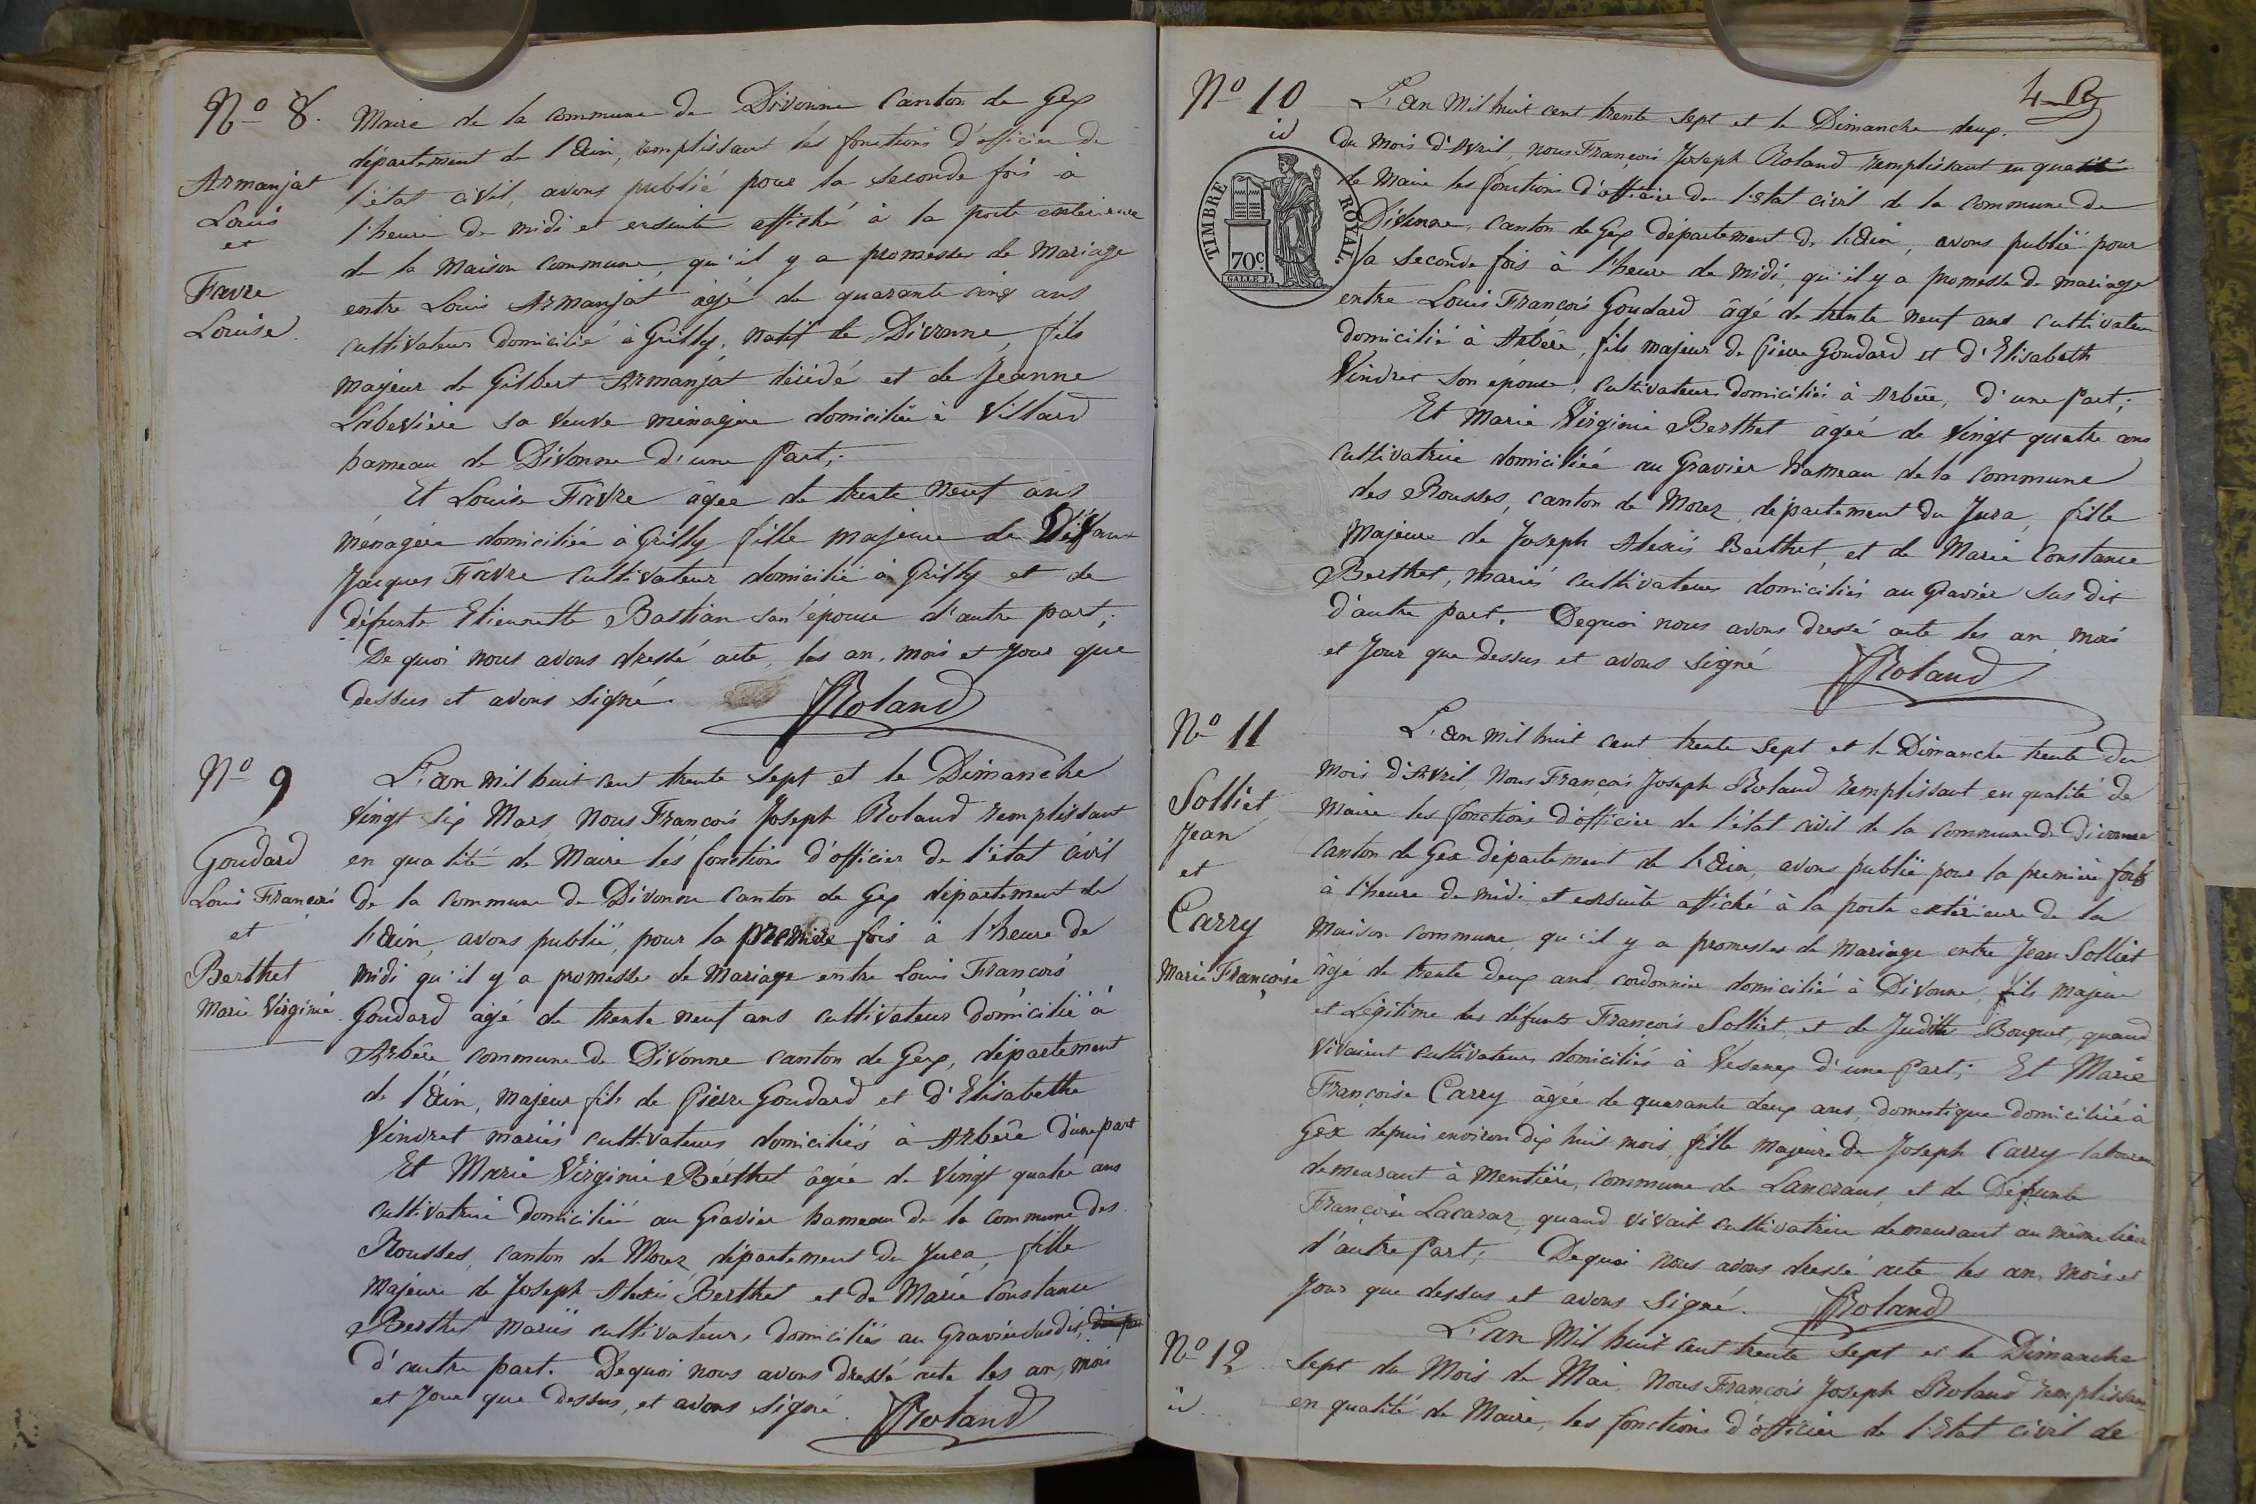 No 8.
Armanjat
Louis
et
Favre
Louise.
Maire de la commune de Divonne Canton de Gex
département de l'Ain, remplissant les fonctions d'officier de
l'état civil, avons publié pour la seconde fois à
l'heure de midi et ensuite affiché à la porte extérieure
de la Maison commune, qu'il y a promesse de Mariage
entre Louis Armanjat âgé de quarante cinq ans
cultivateur domicilié à Grilly, natif de Divonne, fils
majeur de Gilbert Armanjat décédé et de Jeanne
Labevière sa veuve ménagère domiciliée à Villard
hameau de Divonne d'une Part;
Et Louise Favre âgée de trente neuf ans
ménagère domiciliée à Grilly fille majeure de
Jacques Favre cultivateur domicilié à Grilly et de
défunte Etiennette Bastian son épouse d'autre part;
De quoi nous avons dressé acte, les an, mois et jour que
dessus et avons signé.
Roland
No 9
Goudard
Louis François
et
Berthet
Marie Virginie.
L'an mil huit cent trente sept et le Dimanche
vingt six Mars, nous François Joseph Roland remplissant
en qualité de Maire les fonctions d'officier de l'état civil
de la commune de Divonne canton de Gex département de
l'Ain, avons publié, pour la première fois à l'heure de
midi qu'il y a promesse de Mariage entre Louis François
Goudard âgé de trente neuf ans cultivateur domicilié à
Arbère, commune de Divonne canton de Gex, département
de l'Ain, majeur fils de Pierre Goudard et d'Elisabethe
Vindret mariés cultivateurs domiciliés à Arbère d'une part
Et Marie Virginie Berthet âgée de vingt quatre ans
cultivatrice domiciliée au Gravier hameau de la commune des
Rousses, canton de Morez, département du Jura, fille
majeure de Joseph Alexis Berthet et de Marie Constance
Berthet mariés cultivateurs, domiciliés au Gravier susdit,
d'autre part. De quoi nous avons dressé acte les an, mois
et jour que dessus, et avons signé.
Roland
4
No 10
id
TIMBRE ROYAL.
70c
L'an mil huit cent trente sept et le Dimanche deux.
du mois d'Avril, nous François Joseph Roland remplissant en qualité
de Maire les fonctions d'officier de l'état civil de la commune de
Divonne, canton de Gex département de l'Ain, avons publié pour
la seconde fois à l'heure de midi, qu'il y a promesse de mariage
entre Louis François Goudard âgé de trente neuf ans cultivateur
domicilié à Arbère, fils majeur de Pierre Goudard et d'Elisabeth
Vindret son épouse, cultivateurs domiciliés à Arbère, d'une part;
Et Marie Virginie Berthet âgée de vingt quatre ans
cultivatrice domiciliée au Gravier hameau de la commune
des Rousses, canton de Morez, département du Jura, fille
majeure de Joseph Alexis Berthet, et de Marie Constance
Berthet, mariés cultivateurs domiciliés au Gravier sus dit
d'autre part. De quoi nous avons dressé acte les an, mois
et jour que dessus et avons signé
Roland
No 11
Solliet
Jean
et
Carry
Marie Françoise
L'an mil huit cent trente sept et le Dimanche trente du
mois d'Avril, Nous François Joseph Roland remplissant en qualité de
Maire les fonctions d'officier de l'état civil de la commune de Divonne
canton de Gex département de l'Ain, avons publié pour la première fois
à l'heure de midi, et ensuite affiché à la porte extérieure de la
maison commune, qu'il y a promesses de mariage entre Jean Solliet
âgé de trente deux ans, cordonnier domicilié à Divonne, fils majeur
et légitime des défunts François Solliet, et de Judith Bouquet, quand
vivaient cultivateurs domiciliés à Vesenex d'une Part; Et Marie
Françoise Carry âgée de quarante deux ans, domestique domiciliée à
Gex depuis environ dix huit mois, fille majeure de Joseph Carry laboureur
demeurant à Mentière, commune de Lancrans, et de Défunte
Françoise Lacaraz, quand vivait cultivatrice demeurant au même lieu
d'autre Part; De quoi nous avons dressé acte les an, mois et
jour que dessus et avons signé.
Roland
No 12
id.
L'an mil huit cent trente sept et le Dimanche
sept du Mois de Mai, Nous François Joseph Roland remplissant
en qualité de Maire, les fonctions d'officier de l'état civil de